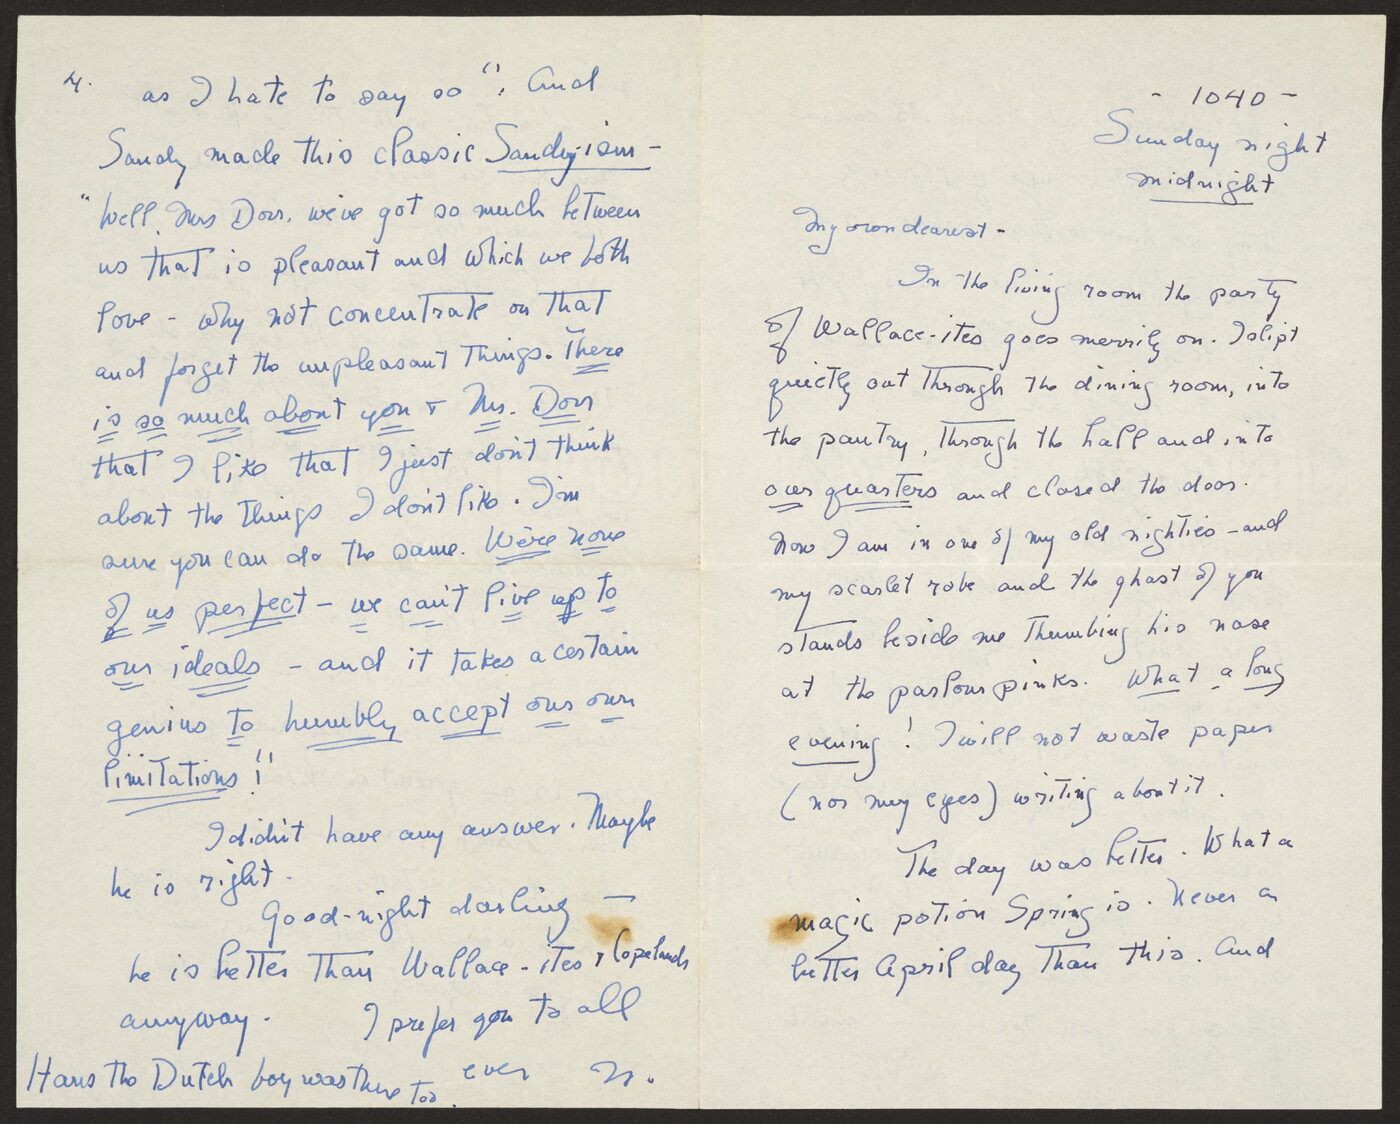 - 1040 -
Sunday night
midnight
My own dearest -
In the living room the party
of Wallace-ites goes merrily on. I slipt
quietly out through the dining room, into
the pantry, through the hall and into
our quarters and closed the door.
Now I am in one of my old nighties - and
my scarlet robe and the ghost of you
stands beside me thumbing his nose
at the parlour pinks. What a long
evening! I will not waste paper
(nor my eyes) writing about it.
The day was better. What a
magic potion Spring is. Never a
better April day than this. And
4.
as I hate to say so". And
Sandy made this classic Sandyism -
"Well, Mrs Dorr. we've got so much between
us that is pleasant and which we both
love - why not concentrate on that
and forget the unpleasant things. There
is so much about you + Mr. Dorr
that I like that I just don't think
about the things I don't like. I'm
sure you can do the same. We're none
of us perfect - we can't live up to
our ideals - and it takes a certain
genius to humbly accept our own
limitations!"
I didn't have any answer. Maybe
he is right.
Good-night darling -
he is better than Wallace-ites + Copelands
anyway. I prefer you to all
ever N.
Hans the Dutch boy was there too.